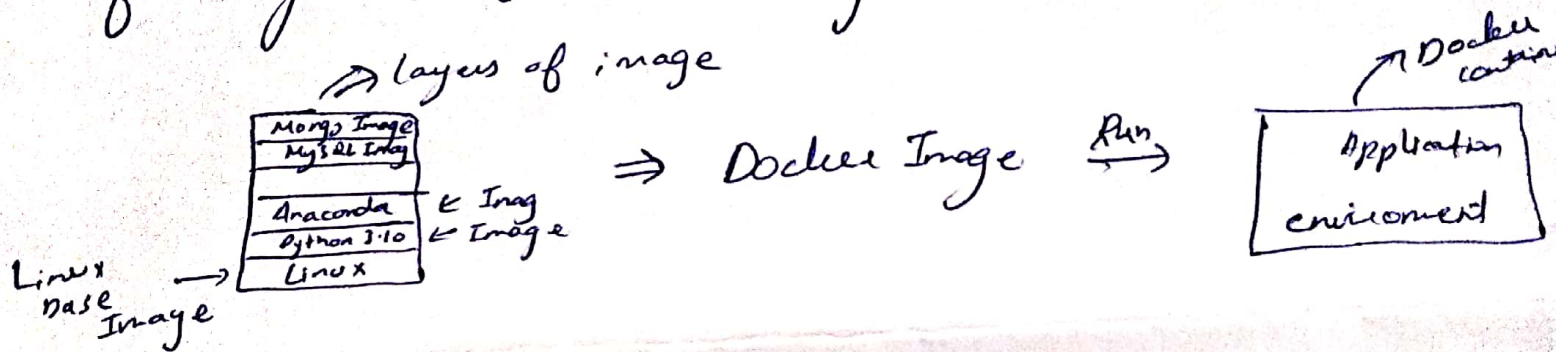 layers of image
Docker
Mongo Image
MySQL Imag
Anaconda ← Imag
Python 3.10 ← Image
Linux
Linux
Base
Image
⇒ Docker Image
Run
Application
enviroment